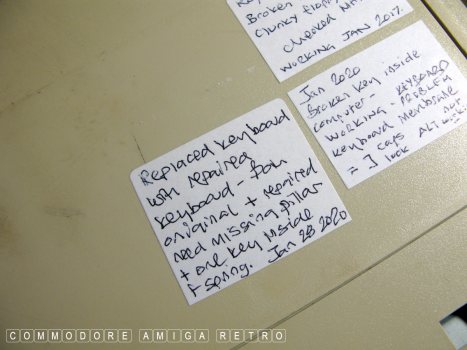 Broken
Clunky
Checked
WORKING JAN 2017.
Jan 2020
Broken key inside
computer - KEYBOARD
WORKING - PROBLEM
Keyboard Membrane
= ] caps not
lock ALT
Replaced Keyboard
with repaired
Keyboard -
original + repaired
need missing pillar
+ one key inside
+ spring. Jan 28 2020
COMMODORE AMIGA RETRO